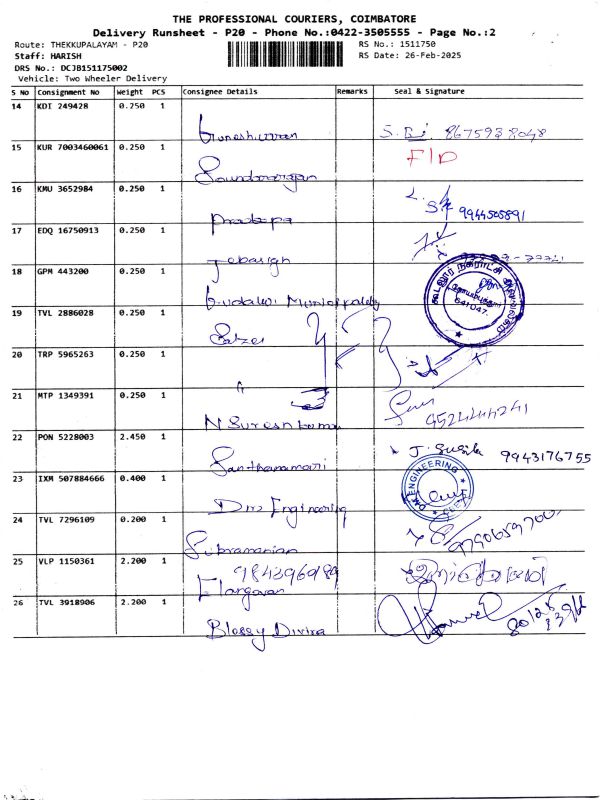 THE PROFESSIONAL COURIERS, COIMBATORE
Delivery Runsheet - P20 - Phone No.:0422-3505555 - Page No.:2
Route: THEKKUPALAYAM - P20
RS No.: 1511750
Staff: HARISH
RS Date: 26-Feb-2025
DRS No.: DCJB151175002
Vehicle: Two Wheeler Delivery
S No Consignment No Weight PCS Consignee Details Remarks Seal & Signature
14 KDI 249428 0.250 1
8675938048
15 KUR 7003460061 0.250 1
F/D
Soundararajan
16 KMU 3652984 0.250 1
9944505891
Pradeepa
17 EDQ 16750913 0.250 1
Jebasign
18 GPM 443200 0.250 1
641047.
Gudalur Municipality
19 TVL 2886028 0.250 1
20 TRP 5965263 0.250 1
21 MTP 1349391 0.250 1
9524444241
N Suresh kumar
22 PON 5228003 2.450 1
J. Sugila 9943176755
Santhanamari
23 IXM 507884666 0.400 1
DM ENGINEERING
Dm Engineering
24 TVL 7296109 0.200 1
Subramanian
25 VLP 1150361 2.200 1
9843969189
Elangovan
26 TVL 3918906 2.200 1
Blessy Divina